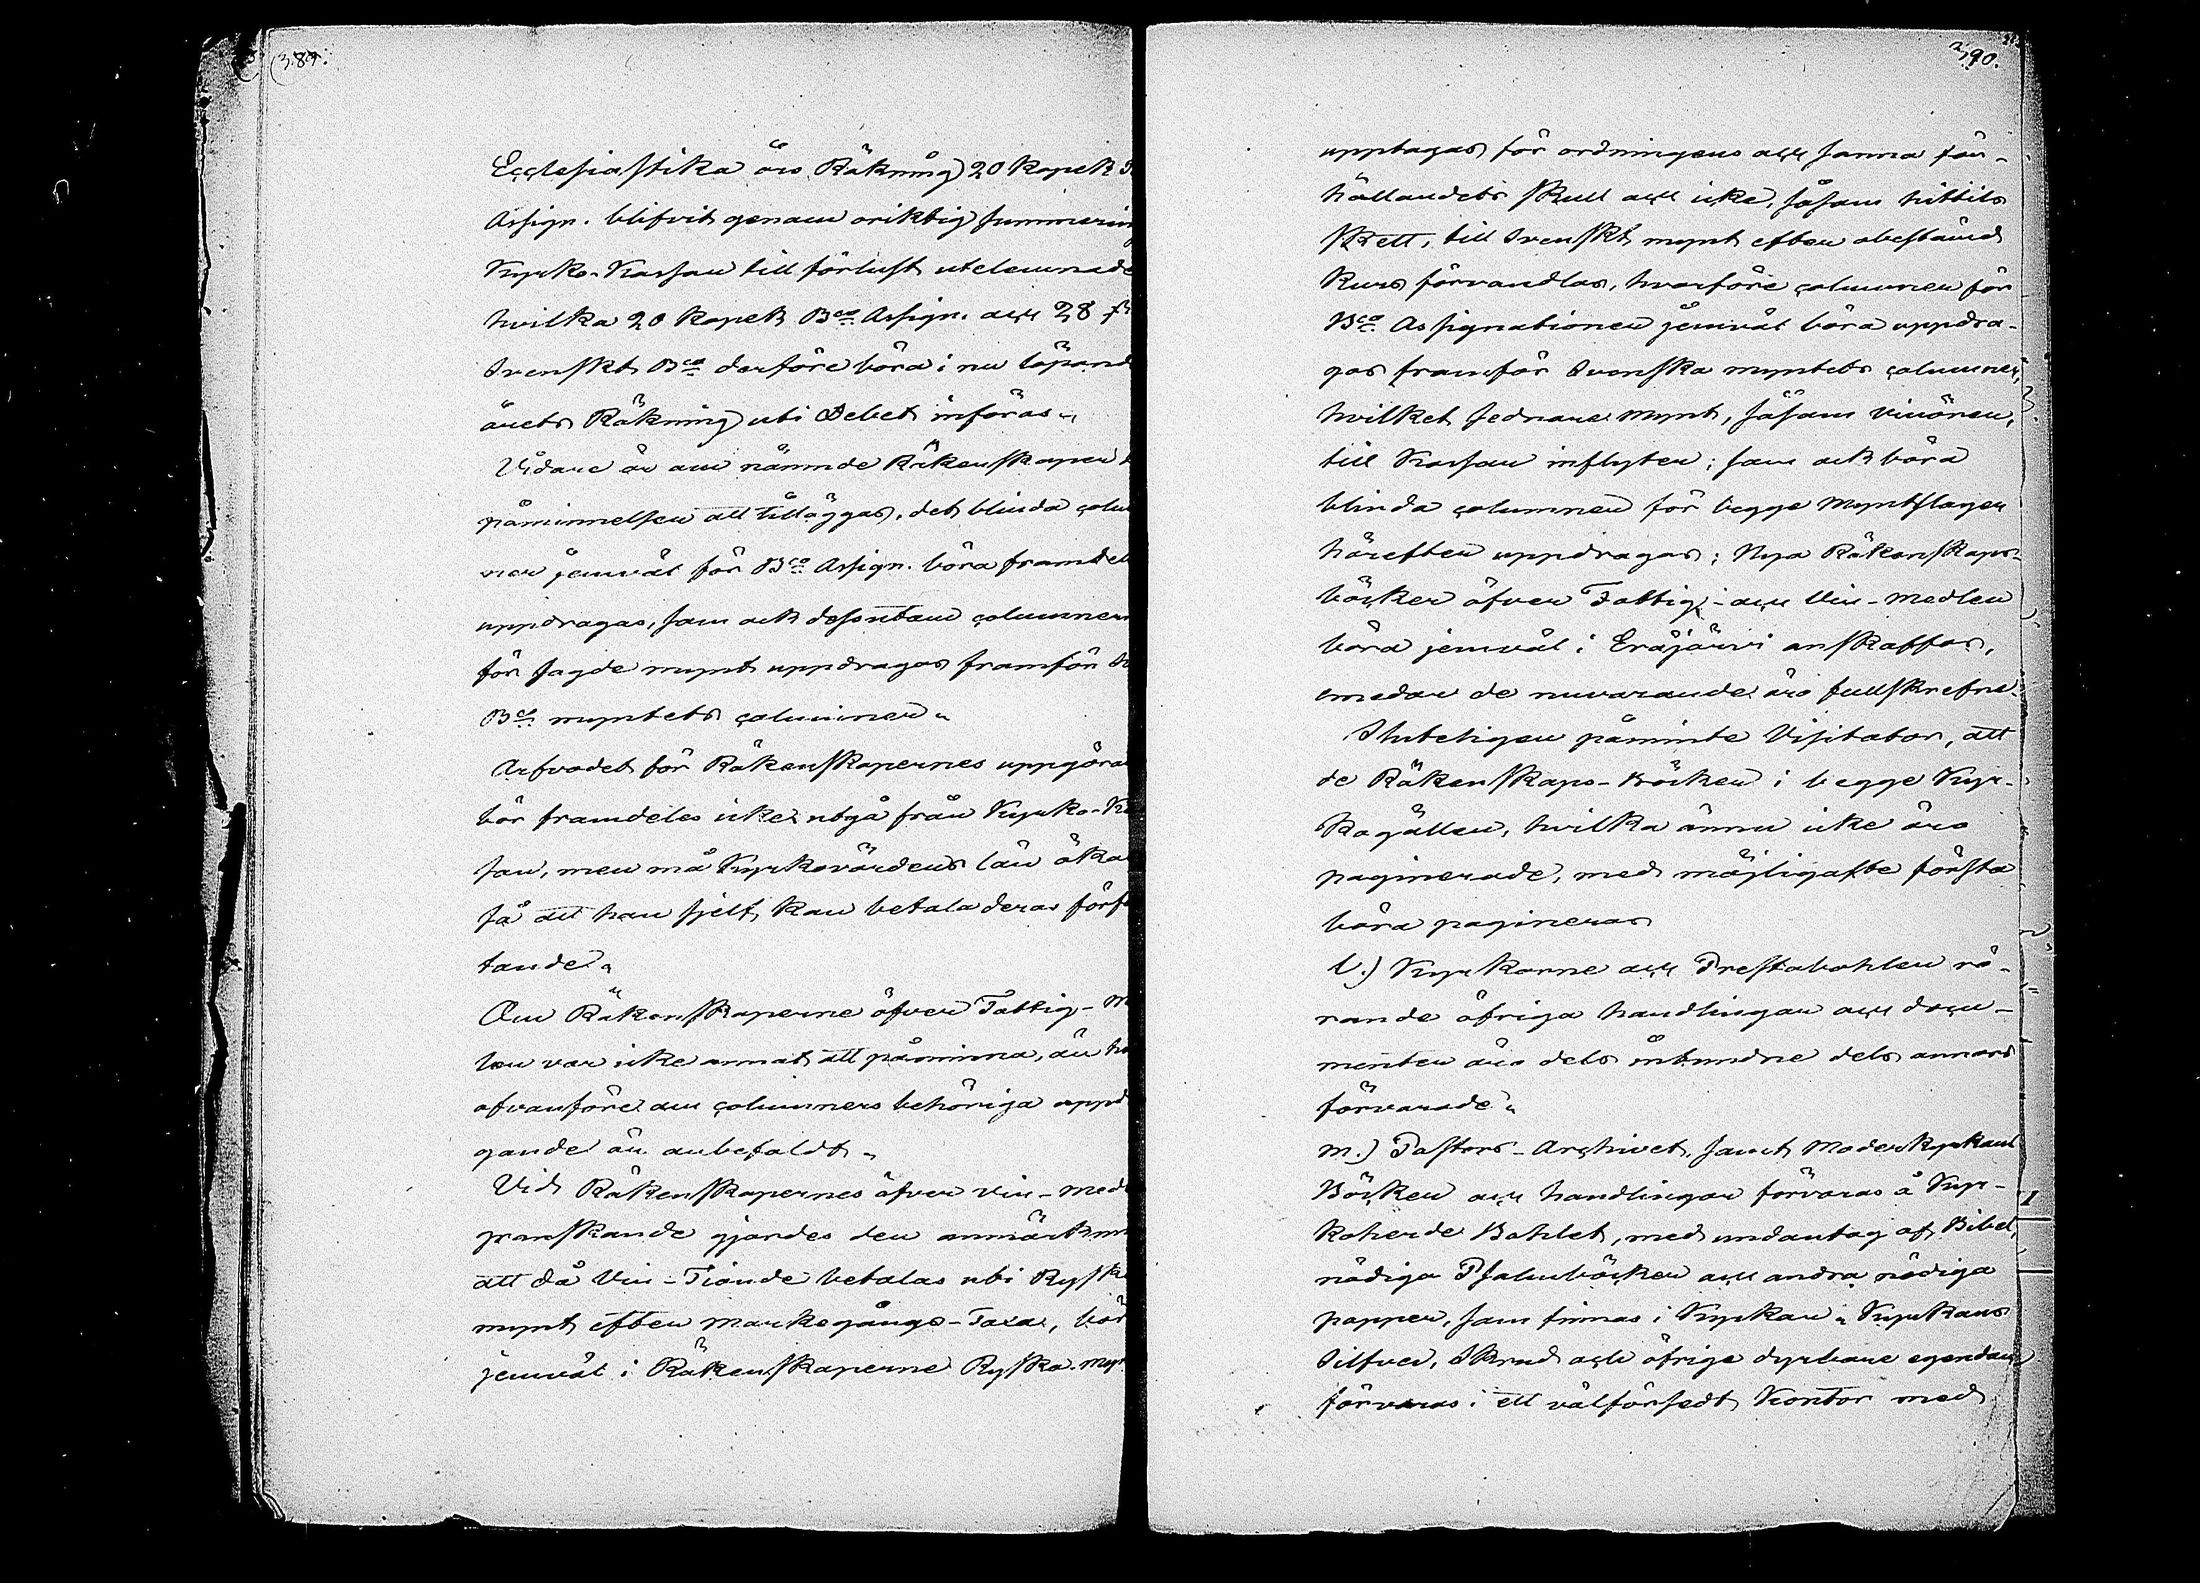 389.
Ecclesiastika års Räkning 20 Kopek
Assign. blifvit genom oriktig summering
Kyrko-Kassan till förlust utelemnade
hvilka 20 Kopek Bco Assign. och 28
Svenskt Bco derföre böra i nu löpande
årets Räkning uti Debet införas.
Vidare är om nämnde Räkenskaper
påminnelsen att tilläggas, det blinda colum
ner jemväl för Bco Assign. böra framdel
uppdragas, som ock dessutom columner
för sagde mynt uppdragas framför
Bco myntets columner.
Arfvodet för Räkenskapernes uppgöra
bör framdeles icke utgå från Kyrko-Ka
san, men må Kyrkovärdens lön öka
så att han sjelf kan betala deras förf
tande.
Om Räkenskaperne öfver Fattig-M
len var icke annat att påminna, än h
ofvanföre om columners behöriga uppd
gande är anbefaldt.
Vid Räkenskapernes öfver Vin-Med
granskande gjordes den anmärkni
att då Vin-Tionde betalas uti Ryskt
mynt efter Markegångs-Taxa, bör
jemväl i Räkenskaperne Ryska Myn
390.
upptagas för ordningens och sanna för-
hållandets skull och icke, såsom hittils
skett, till Svenskt mynt efter obestämd
Kurs förvandlas, hvarföre columner för
Bco Assignationer jemväl böra uppdra-
gas framför Svenska myntets columner,
hvilket sednare mynt, såsom vinören,
till Kassan inflyter; som ock böra
blinda columner för begge Myntslagen
härefter uppdragas; Nya Räkenskaps-
böcker öfver Fattig- och Vin-Medlen
böra jemväl i Eräjärvi anskaffas,
emedan de nuvarande äro fullskrefne.
Sluteligen påminte Visitator, att
de Räkenskaps-Böcker i begge Kyr-
kogällen, hvilka ännu icke äro
paginerade, med möjligaste första
böra pagineras
l.) Kyrkorne och Prestabohlen rö-
rande öfriga handlingar och docu-
menter äro dels inbundne dels annars
förvarade.
m.) Pastors-Archivet, samt Moderkyrkans
Böcker och handlingar förvaras å Kyr-
koherde Bohlet, med undantag af Bibel,
nödiga Psalmböcker och andra nödiga
papper, som finnas i Kyrkan. Kyrkans
Silfver, Skrud och öfrige dyrbare egendom
förvaras i ett välförsedt Kontor med